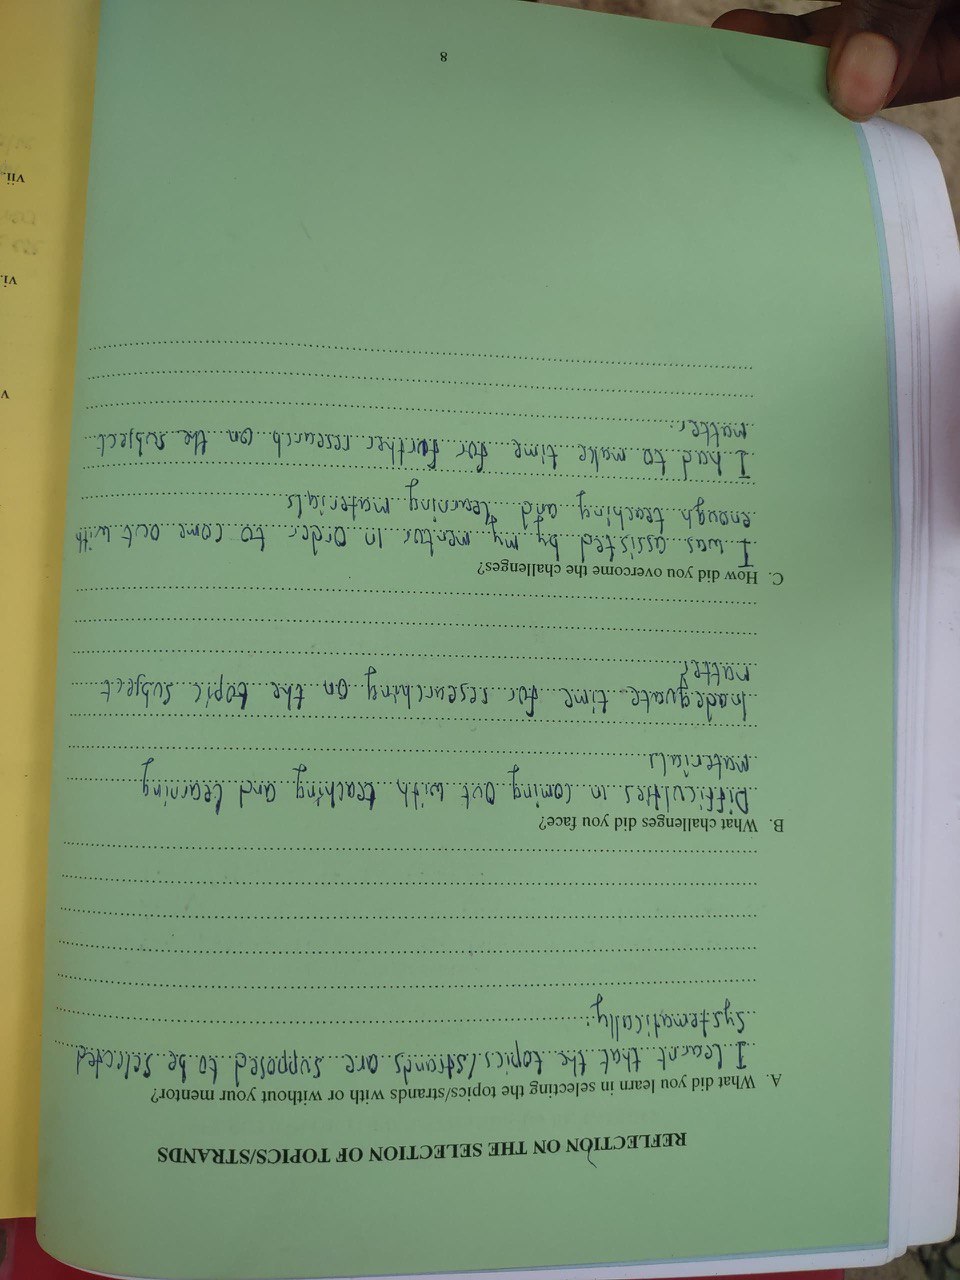 REFLECTION ON THE SELECTION OF TOPICS/STRANDS
A. What did you learn in selecting the topics/strands with or without your mentor?
I learnt that the topics/strands are supposed to be selected
systematically.
B. What challenges did you face?
Difficulties in coming out with teaching and learning
materials
Inadequate time for researching on the topic subject
matter
C. How did you overcome the challenges?
I was assisted by my mentor in order to come out with
enough teaching and learning materials
I had to make time for further research on the subject
matter.
8
v
vi.
vii.